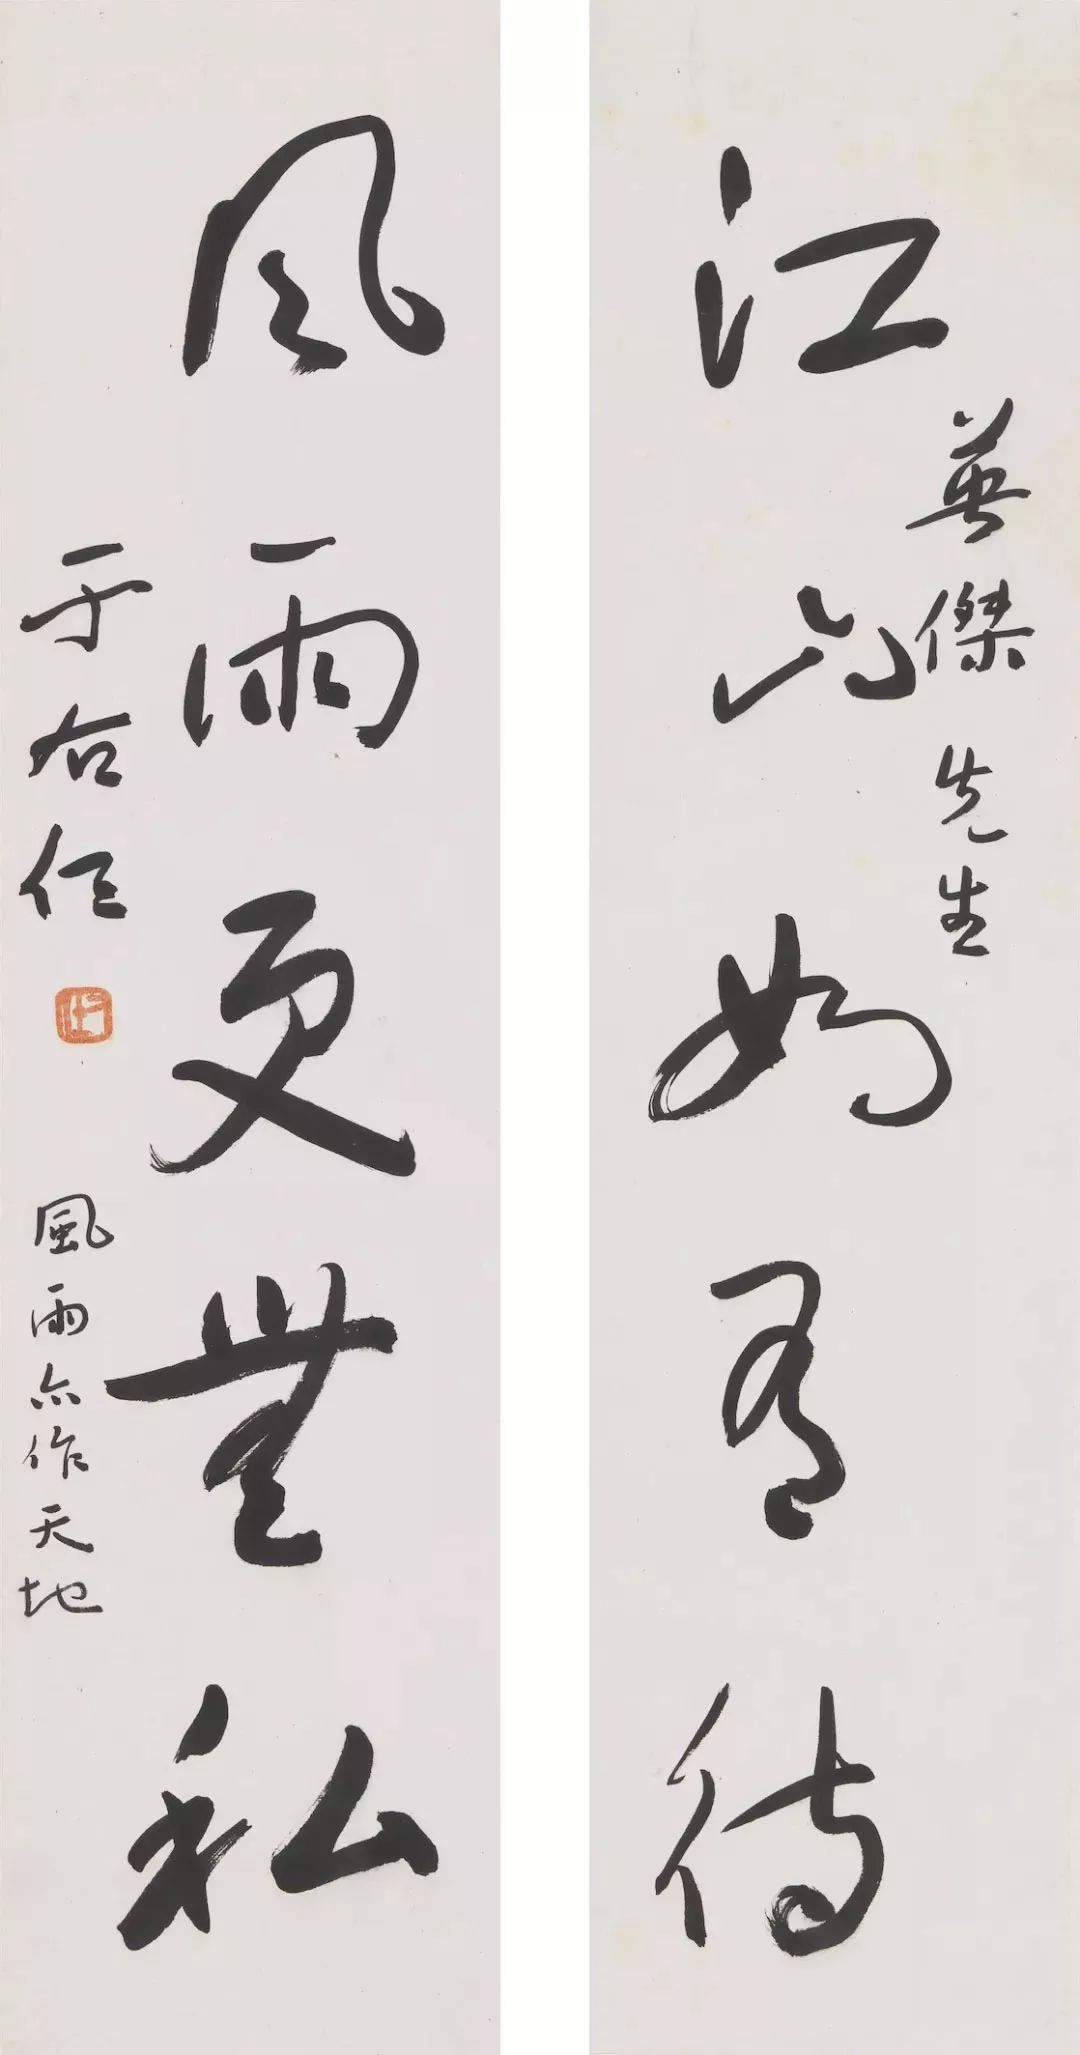 江山如有待
英傑先生
風雨更無私
于右任
風雨亦作天地